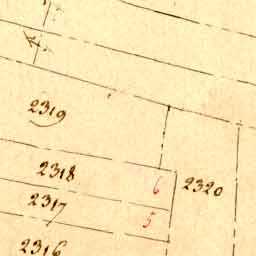 2319
2318 6 2320
2317 5
2316